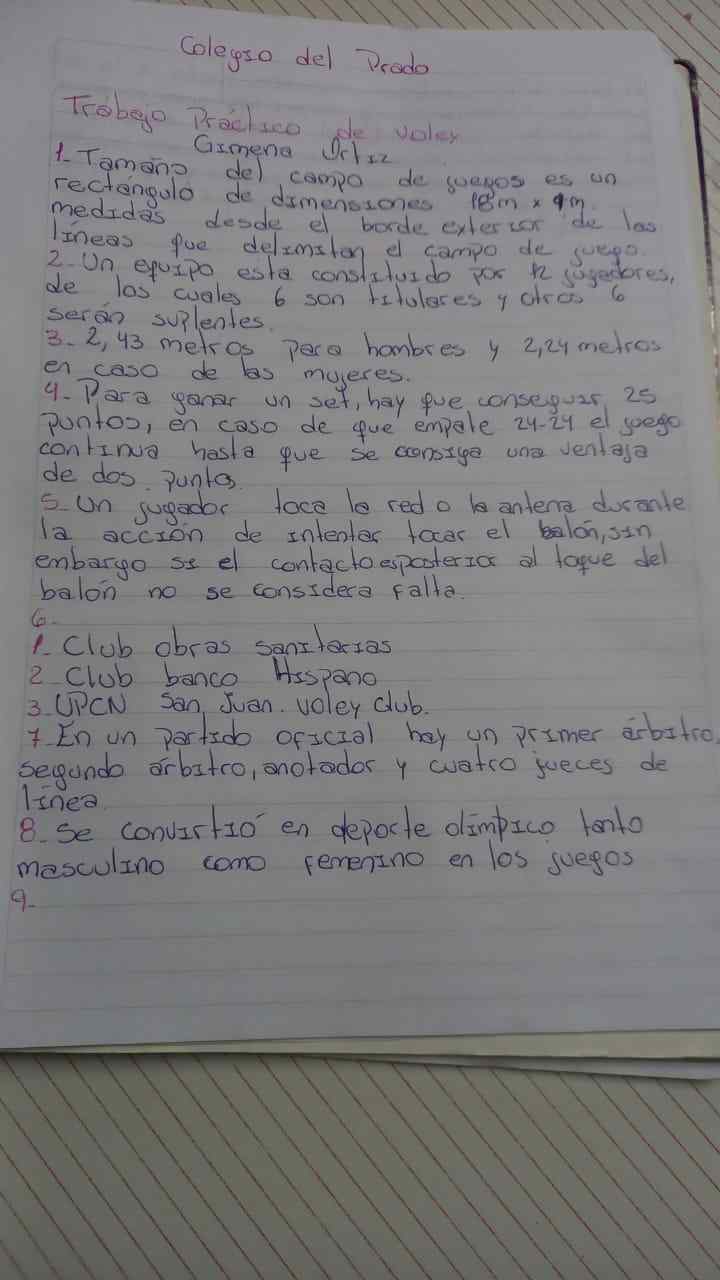 Colegio del Prado
Trabajo Práctico de voley
Gimena Ortiz
1- Tamaño del campo de juegos es un
rectángulo de dimensiones 18m x 9m
medidas desde el borde exterior de las
líneas que delimitan el campo de juego.
2- Un equipo esta constituido por 12 jugadores,
de los cuales 6 son titulares y otros 6
serán suplentes.
3- 2,43 metros para hombres y 2,24 metros
en caso de las mujeres.
4- Para ganar un set, hay que conseguir 25
puntos, en caso de que empate 24-24 el juego
continua hasta que se consiga una ventaja
de dos punto.
5- Un jugador toca la red o la antena durante
la acción de intentar tocar el balón, sin
embargo si el contacto es posterior al toque del
balón no se considera falta.
6-
1- Club obras sanitarias
2- Club banco Hispano
3- UPCN San Juan. Voley Club.
7- En un partido oficial hay un primer árbitro,
segundo árbitro, anotador y cuatro jueces de
línea.
8- Se convirtió en deporte olímpico tanto
masculino como femenino en los juegos
9-